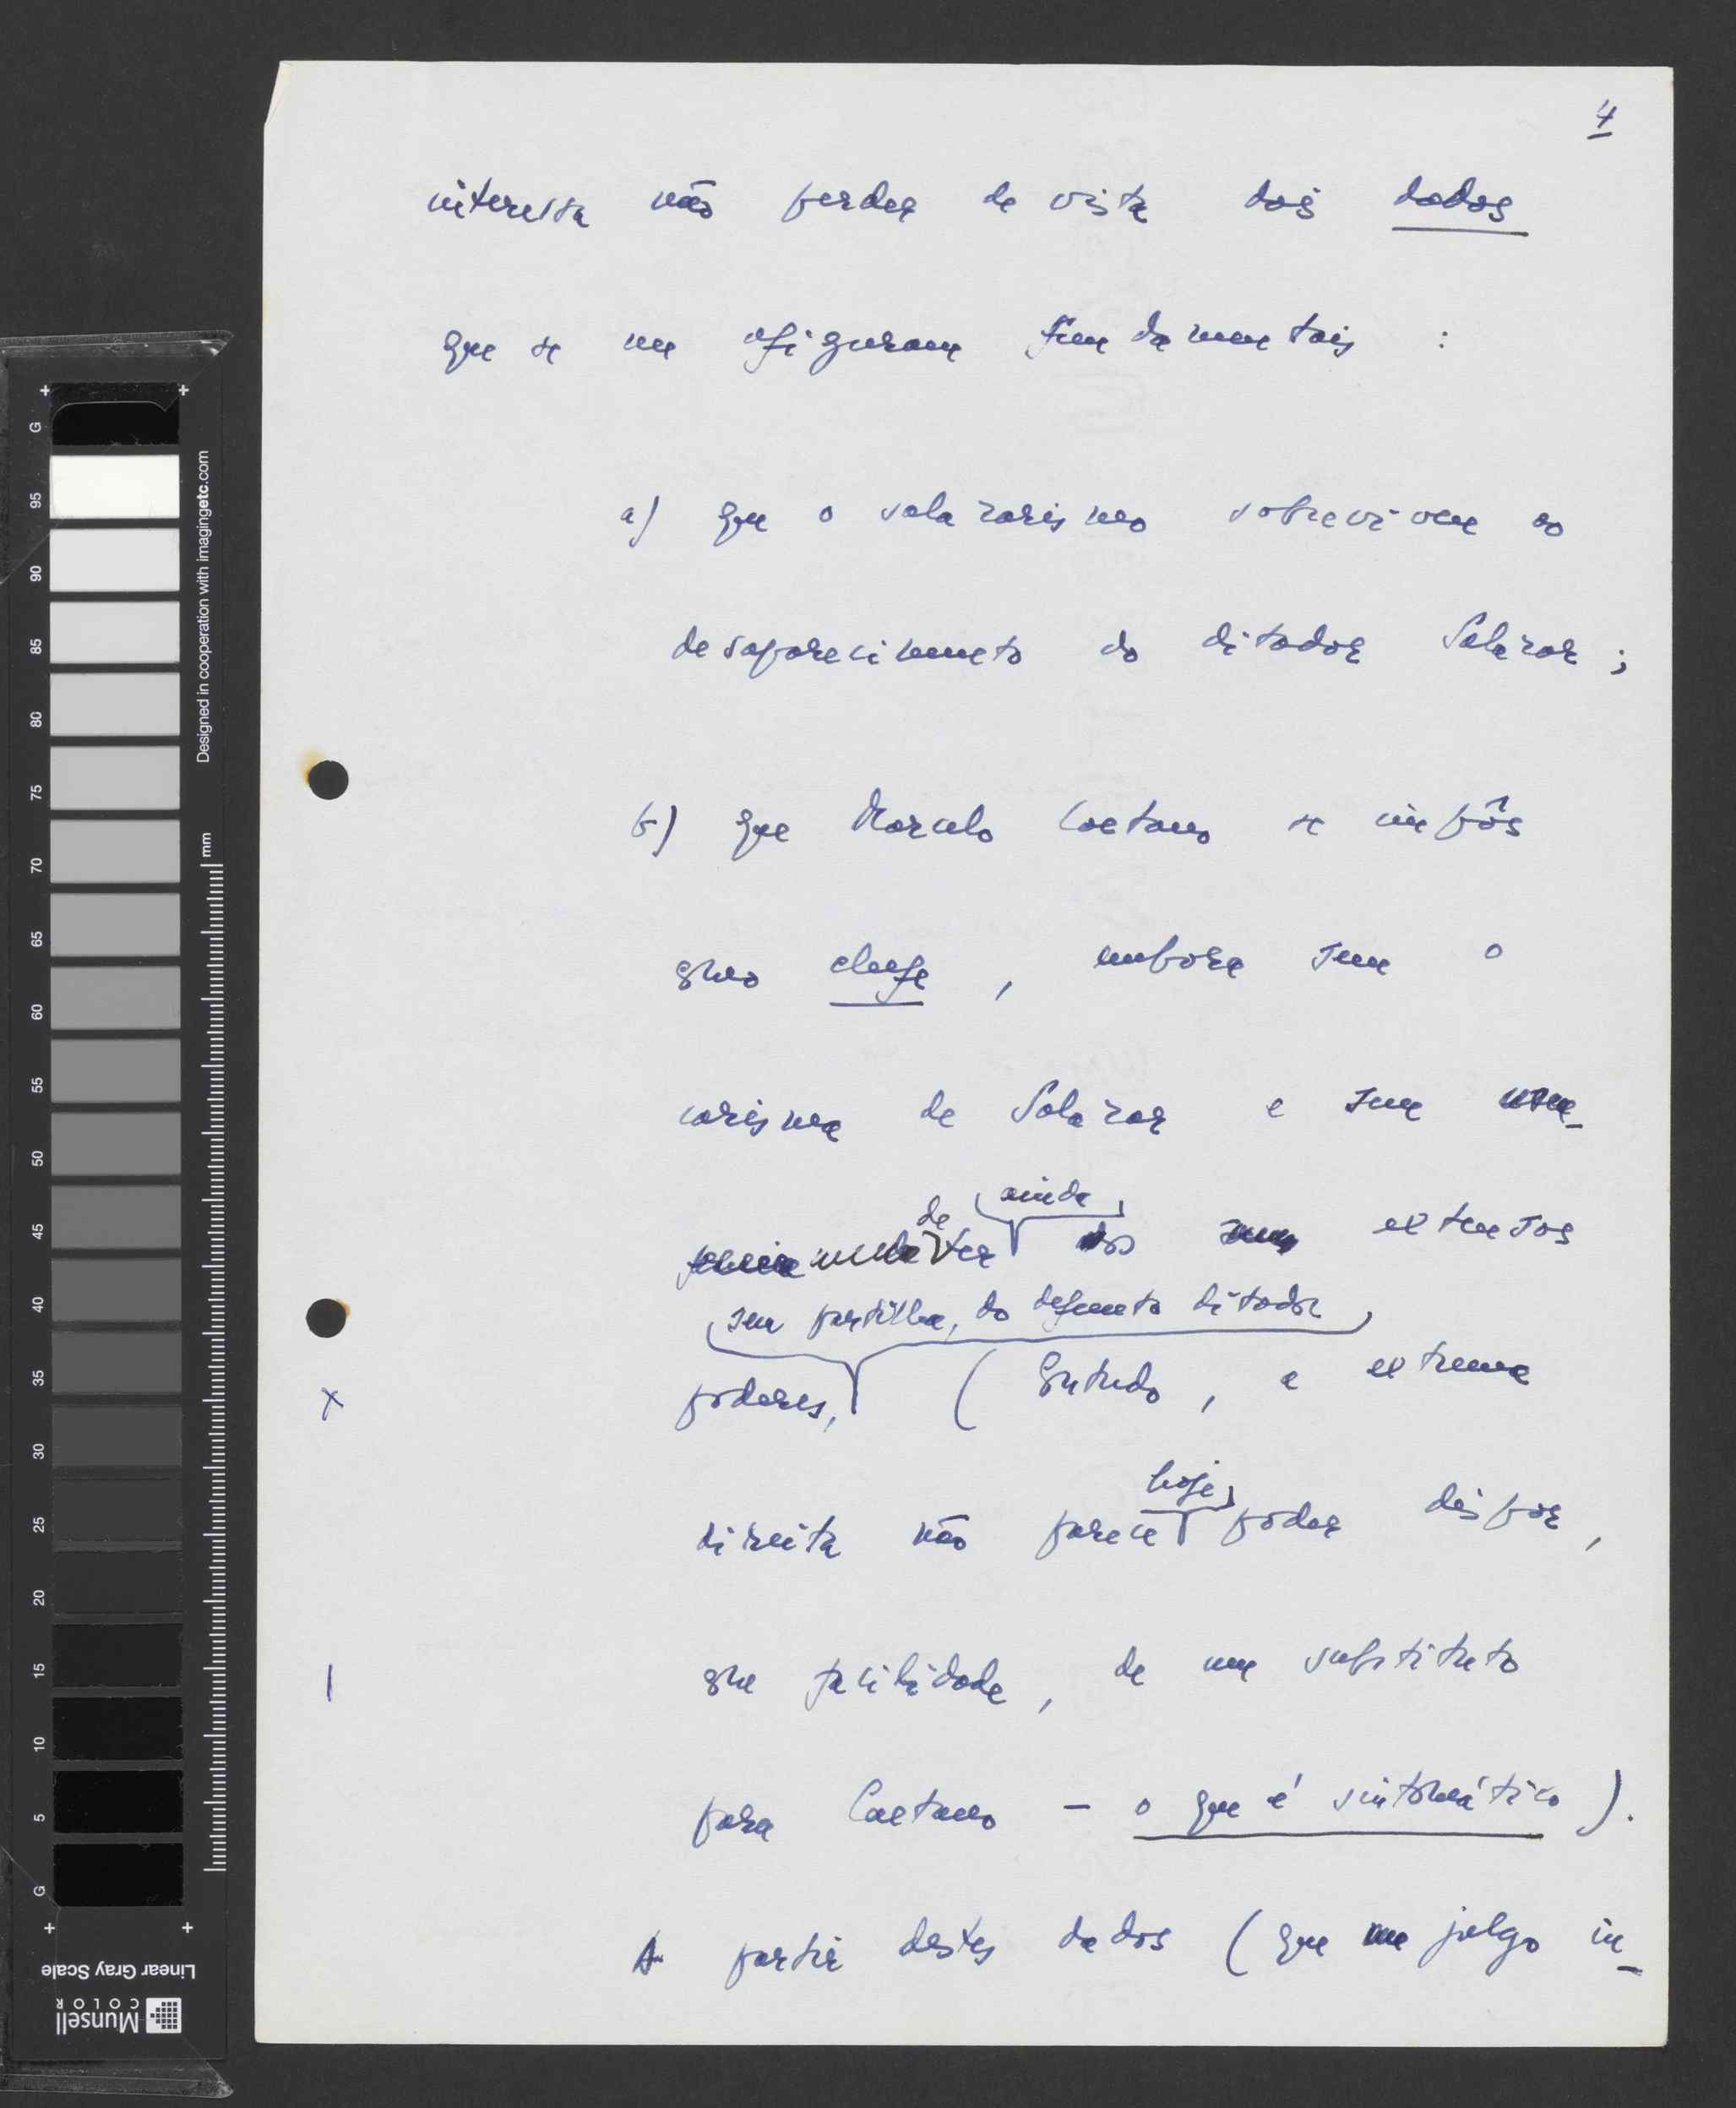 4
interessa não perder de vista dois dados
que se me afiguram fundamentais :
a) que o salazarismo sobreviveu ao
desaparecimento do ditador Salazar ;
b) que Marcelo Caetano se impôs
como chefe , embora sem o
carisma de Salazar e sem
de ainda
ter os extensos
sem partilha, do defunto ditador
x poderes, ( Contudo , a extrema
hoje,
direita não parece poder dispor ,
com facilidade , de um substituto
para Caetano - o que é sintomático ).
A partir destes dados ( que julgo in-
Designed in cooperation with imagingetc.com
mm
G
95
90
85
80
75
70
65
60
55
50
45
40
35
30
25
20
15
10
5
G
Linear Gray Scale
Munsell
COLOR